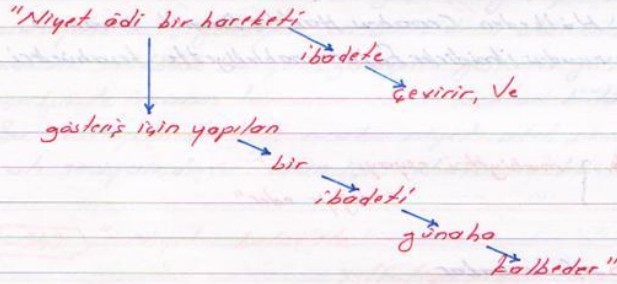 "Niyet âdi bir hareketi
ibadete
çevirir, Ve
gösteriş için yapılan
bir
ibâdeti
günaha
kalbeder"